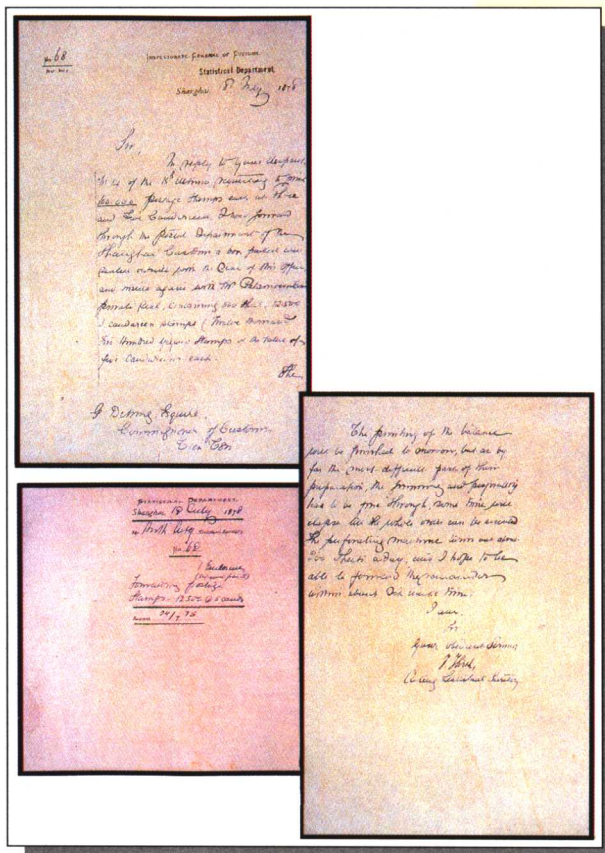 No 68
INSPECTORATE GENERAL OF CUSTOMS
Statistical Department,
Shanghai, July 1878
Sir,
In reply to your despatch
of the ultimo, requesting
postage stamps each at three
and five Candareens, I now forward
through the Postal Department of the
Shanghai Customs a box packed and
sealed outside with the Seal of this Office
and inside again with Mr
private Seal, containing 12500
5 candareen stamps (Twelve thousand
five hundred Stamps of the value of
five Candareens each.
The
G Detring Esquire,
Commissioner of Customs,
Tientsin
STATISTICAL DEPARTMENT.
Shanghai July 1878
No 68
1 Enclosure
Forwarding postage
Stamps. 12500 @ 5 cands
24/7 78
The printing of the balance
will be finished to morrow, but as by
far the most difficult part of their
preparation, the gumming and perforating
has to be gone through, some time will
elapse till the whole order can be executed
The perforating machine turns out about
200 Sheets a day, and I hope to be
able to forward the remainder
within about One weeks time.
I am,
Sir,
Your obedient Servant
Acting Statistical Secretary